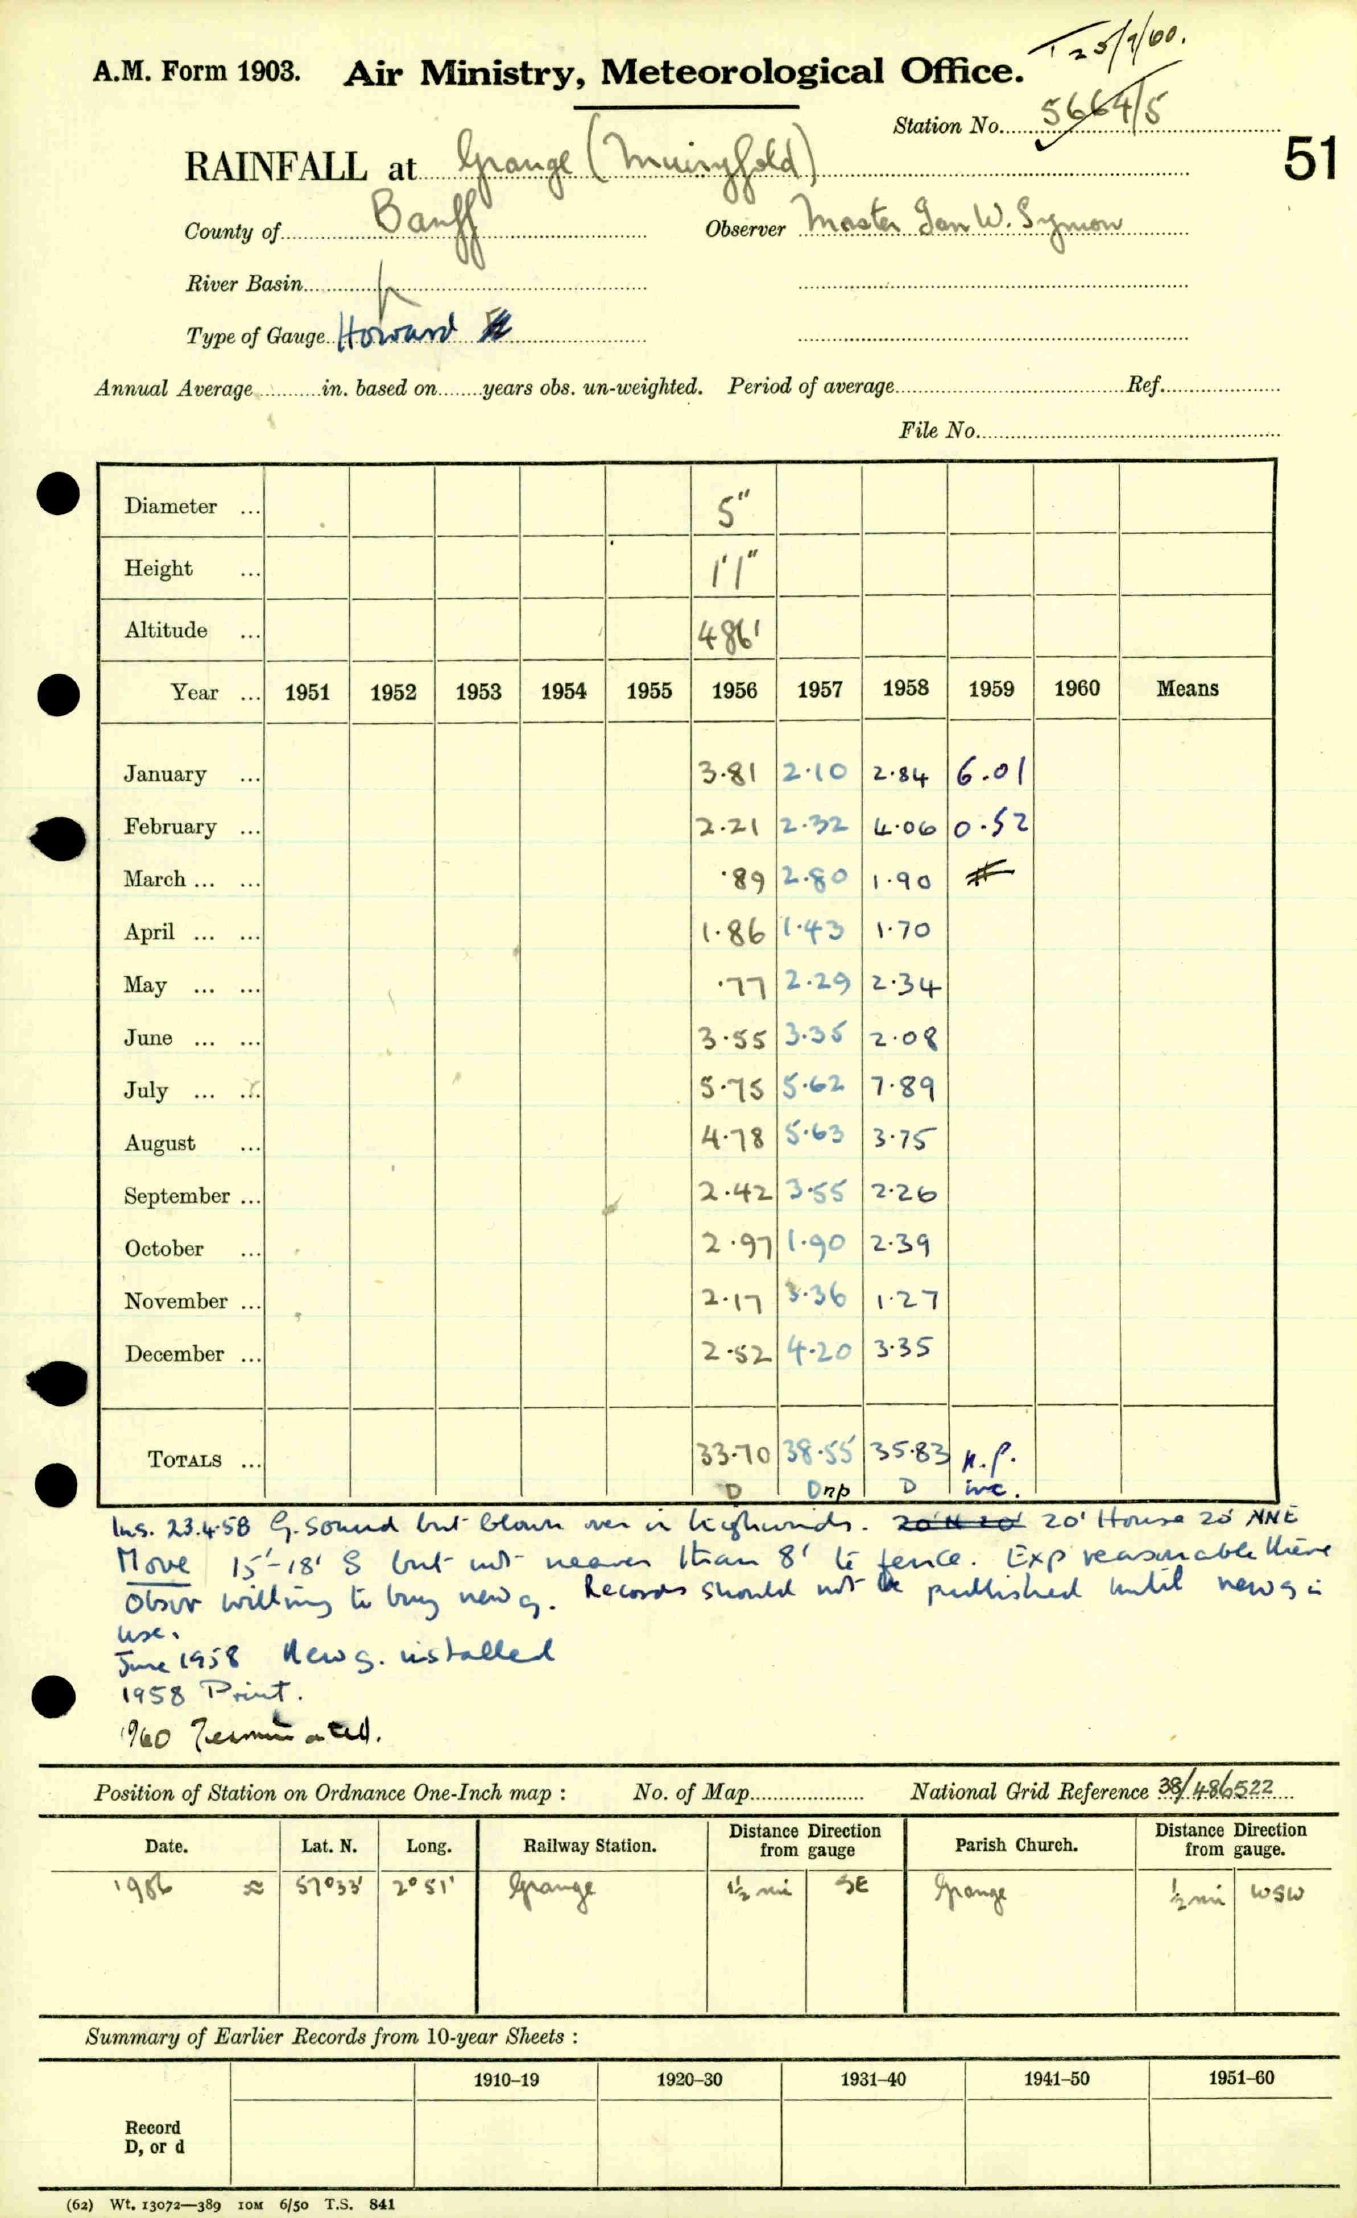 T 25/7/60.
A.M. Form 1903. Air Ministry, Meteorological Office.
Station No. 5664/5
51
RAINFALL at Grange (Muiryfold)
County of Banff Observer Master Ian W. Symon
River Basin
Type of Gauge Howard
Annual Average in. based on years obs. un-weighted. Period of average Ref.
File No.
Diameter ... 5"
Height ... 1'1"
Altitude ... 486'
Year ... 1951 1952 1953 1954 1955 1956 1957 1958 1959 1960 Means
January ... 3.81 2.10 2.84 6.01
February ... 2.21 2.32 4.06 0.52
March ... ... .89 2.80 1.90 #
April ... ... 1.86 1.43 1.70
May ... ... .77 2.29 2.34
June ... ... 3.55 3.35 2.08
July ... ... 5.75 5.62 7.89
August ... 4.78 5.63 3.75
September ... 2.42 3.55 2.26
October ... 2.97 1.90 2.39
November ... 2.17 3.36 1.27
December ... 2.52 4.20 3.35
TOTALS ... 33.70 38.55 35.83 n.p.
D Dnp D inc.
Ins. 23.4.58 G. sound but blown over in high winds. 20' N 20' 20' House 20' NNE
Move 15'-18' S but not nearer than 8' to fence. Exp reasonable there
Obsvr willing to buy new g. Records should not be published until new g in
use.
June 1958 New g. installed
1958 Print.
1960 Terminated.
Position of Station on Ordnance One-Inch map : No. of Map National Grid Reference 38/486522
Date. Lat. N. Long. Railway Station. Distance Direction from gauge Parish Church. Distance Direction from gauge.
1956 ≈ 57°33' 2°51' Grange 1½ mi SE Grange ½ mi WSW
Summary of Earlier Records from 10-year Sheets :
1910–19 1920–30 1931–40 1941–50 1951–60
Record
D, or d
(62) Wt. 13072—389 10M 6/50 T.S. 841